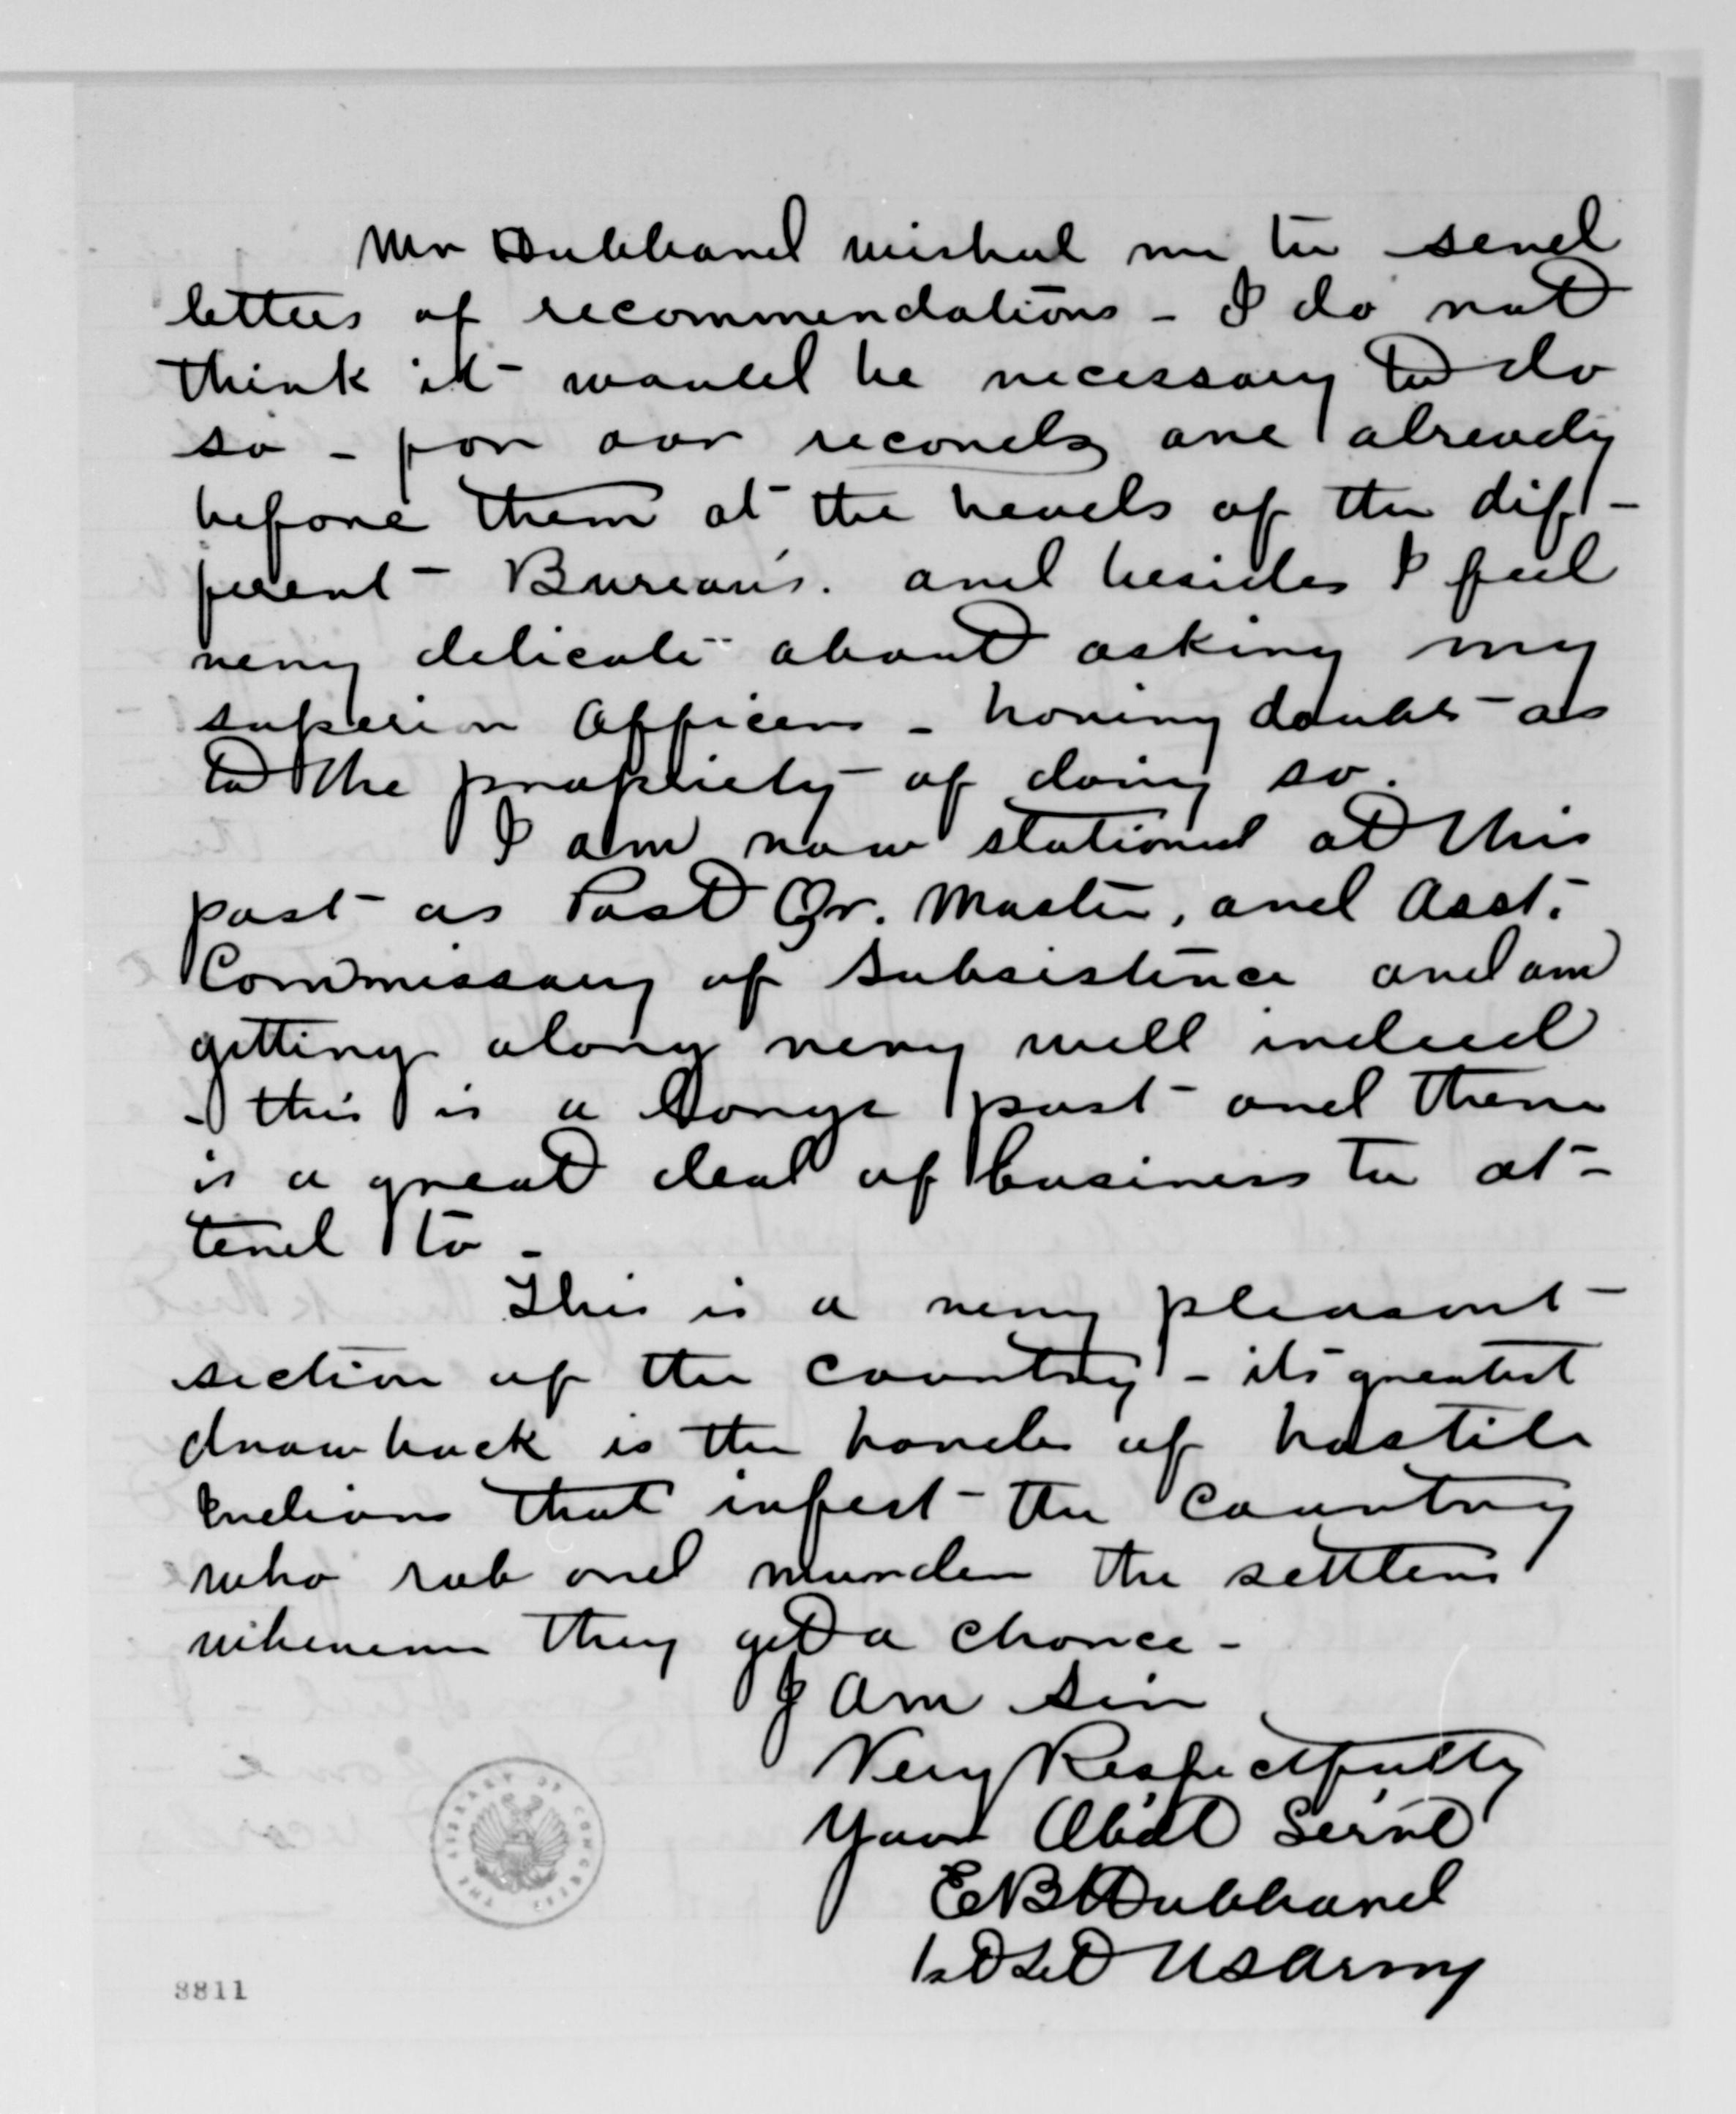 Mr Hubbard wished me to send
letters of recommendations - I do not
think it would be necessary to do
so - for our records are already
before them at the heads of the dif-
ferent Bureau's. and besides I feel
very delicate about asking my
superior Officers - having doubts as
to the propriety of doing so.
I am now stationed at this
post as Post Qr. Master, and Asst.
Commissary of Subsistence and am
getting along very well indeed
- this is a large post and there
is a great deal of business to at-
tend to -
This is a very pleasant
section of the country - its greatest
drawback is the bands of hostile
Indians that infest the country
who rob and murder the settlers
whenever they get a chance -
I Am Sir
Very Respectfully
Your Obdt Servt
EB Hubbard
1st Lt US Army
THE LIBRARY OF CONGRESS
8811